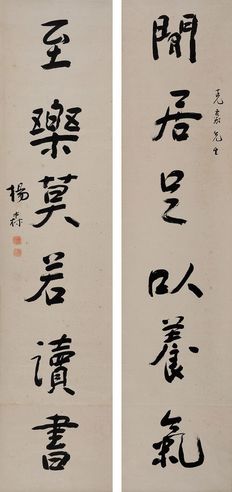 閒居足以養氣
克家先生
至樂莫若讀書
楊森